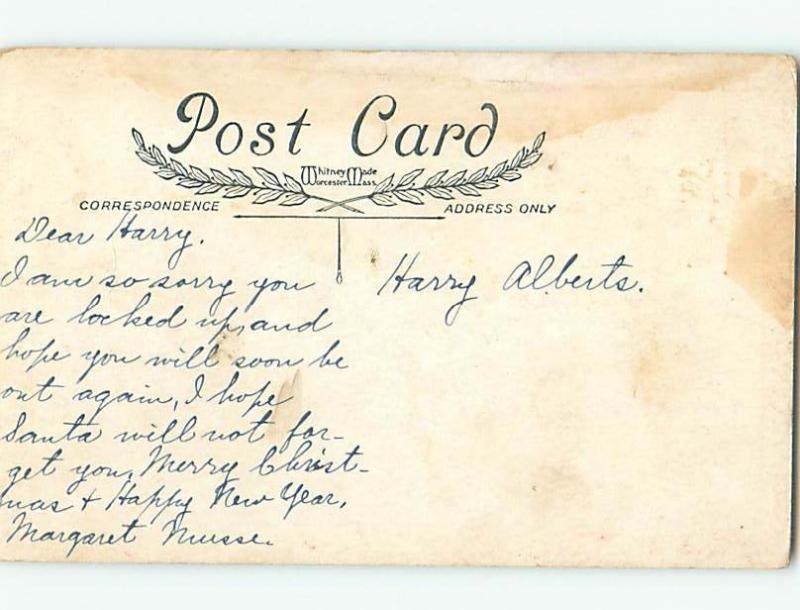 Post Card
Whitney Made
Worcester Mass.
CORRESPONDENCE
ADDRESS ONLY
Dear Harry.
I am so sorry you
are locked up, and
hope you will soon be
out again, I hope
Santa will not for-
get you, Merry Christ-
mas + Happy New Year.
Margaret
Harry Alberts.